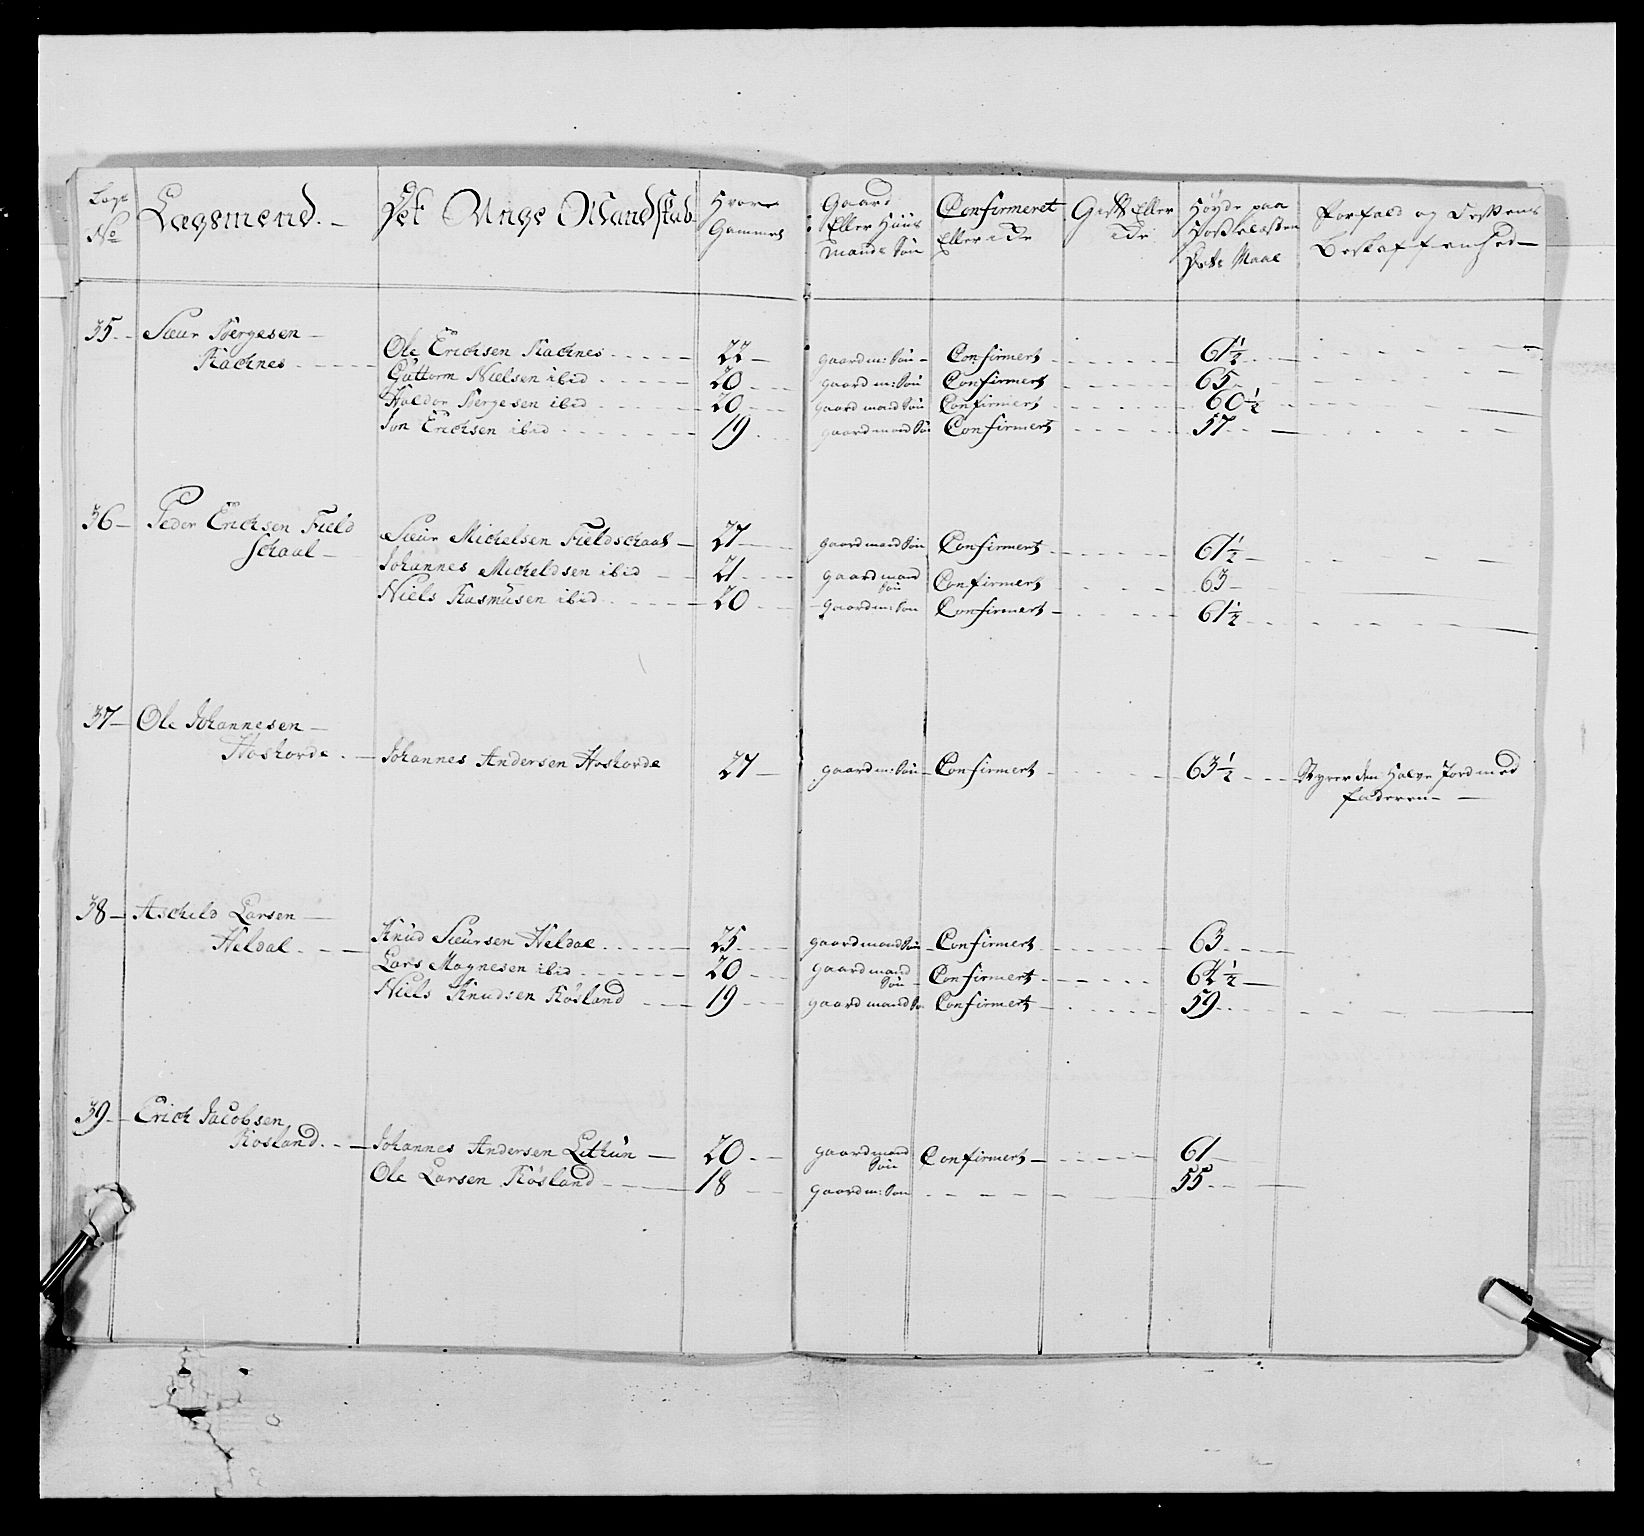 Legs No Lægsmend. Det Unge Mandskab Hvor Gammel Gaard Eller Huus Mands Søn Confirmeret Eller ide Gift Eller ide Høyde paa Dette Maal Forfald og Beskaffenhed
35 Siur Bergesen
Rachnes Ole Erichsen Rachnes 22 gaardm: Søn Confirmert 61½
Guttorm Nielsen ibid 20 gaardm: Søn Confirmert 65
Haldor Bergesen ibid 20 gaardmand Søn Confirmert 60½
Jon Erichsen ibid 19 gaardmand Søn Confirmert 57
36 Peder Erichsen Field
Schaal Siur Michelsen Fieldschaal 27 gaardmand Søn Confirmert 61½
Johannes Michelsen ibid 21 gaardmand Søn Confirmert 63
Niels Rasmusen ibid 20 gaardm: Søn Confirmert 61½
37 Ole Johannesen
Hoshovde Johannes Andersen Hoshovde 27 gaardm: Søn Confirmert 63½ Styrer den Halve Jord med
faderen
38 Aschild Larsen
Heldal Knud Siursen Heldal 25 gaardmand Søn Confirmert 63
Lars Magnesen ibid 20 gaardmand Søn Confirmert 64½
Niels Knudsen Røsland 19 gaardmand Søn Confirmert 59
39 Erich Jacobsen
Røsland Johannes Andersen Lithun 20 gaardmand Søn Confirmert 61
Ole Larsen Røsland 18 gaardm: Søn 55